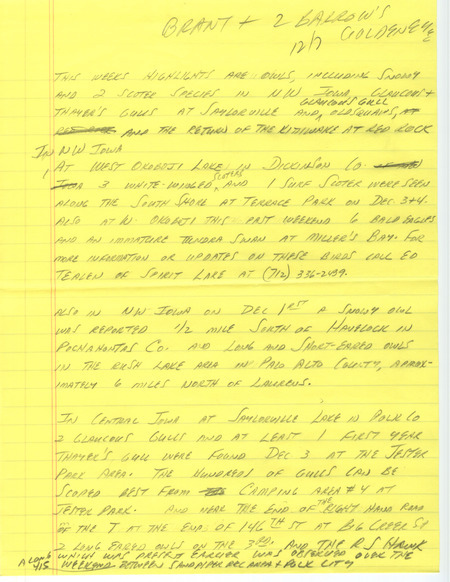 BRANT + 2 BARROW'S
GOLDENEYE
12/7
THIS WEEKS HIGHLIGHTS ARE OWLS, INCLUDING SNOWY
AND 2 SCOTER SPECIES IN N.W. IOWA, GLAUCOUS +
THAYER'S GULLS AT SAYLORVILLE AND, OLDSQUAWS, AT
GLAUCOUS GULL
AND THE RETURN OF THE KITTIWAKE AT RED ROCK
IN NW IOWA
AT WEST OKOBOJI LAKE IN DICKINSON CO.
3 WHITE-WINGED SCOTERS AND 1 SURF SCOTER WERE SEEN
ALONG THE SOUTH SHORE AT TERRACE PARK ON DEC 3+4.
ALSO AT W. OKOBOJI THIS PAST WEEKEND 6 BALD EAGLES
AND AN IMMATURE TUNDRA SWAN AT MILLER'S BAY. FOR
MORE INFORMATION OR UPDATES ON THESE BIRDS CALL ED
THELEN OF SPIRIT LAKE AT (712) 336-2439.
ALSO IN NW IOWA ON DEC 1RST A SNOWY OWL
WAS REPORTED 1/2 MILE SOUTH OF HAVELOCK IN
POCHAHONTAS CO. AND LONG AND SHORT-EARED OWLS
IN THE RUSH LAKE AREA IN PALO ALTO COUNTY, APROX-
IMATELY 6 MILES NORTH OF LAURENS.
IN CENTRAL IOWA AT SAYLORVILLE LAKE IN POLK CO
2 GLAUCOUS GULLS AND AT LEAST 1 FIRST YEAR
THAYER'S GULL WERE FOUND DEC 3 AT THE JESTER
PARK AREA. THE HUNDREDS OF GULLS CAN BE
SCOPED BEST FROM CAMPING AREA #4 AT
JESTER PARK. AND NEAR THE END OF THE RIGHT HAND ROAD
OF THE T AT THE END OF 146TH ST AT BIG CREEK SP
2 LONG EARED OWLS ON THE 3RD. AND THE R S HAWK
WHICH WAS EARLIER WAS OBSERVED OVER THE
WEEKEND BETWEEN SANDPIPER REC AREA + POLK CITY
ALONG
415